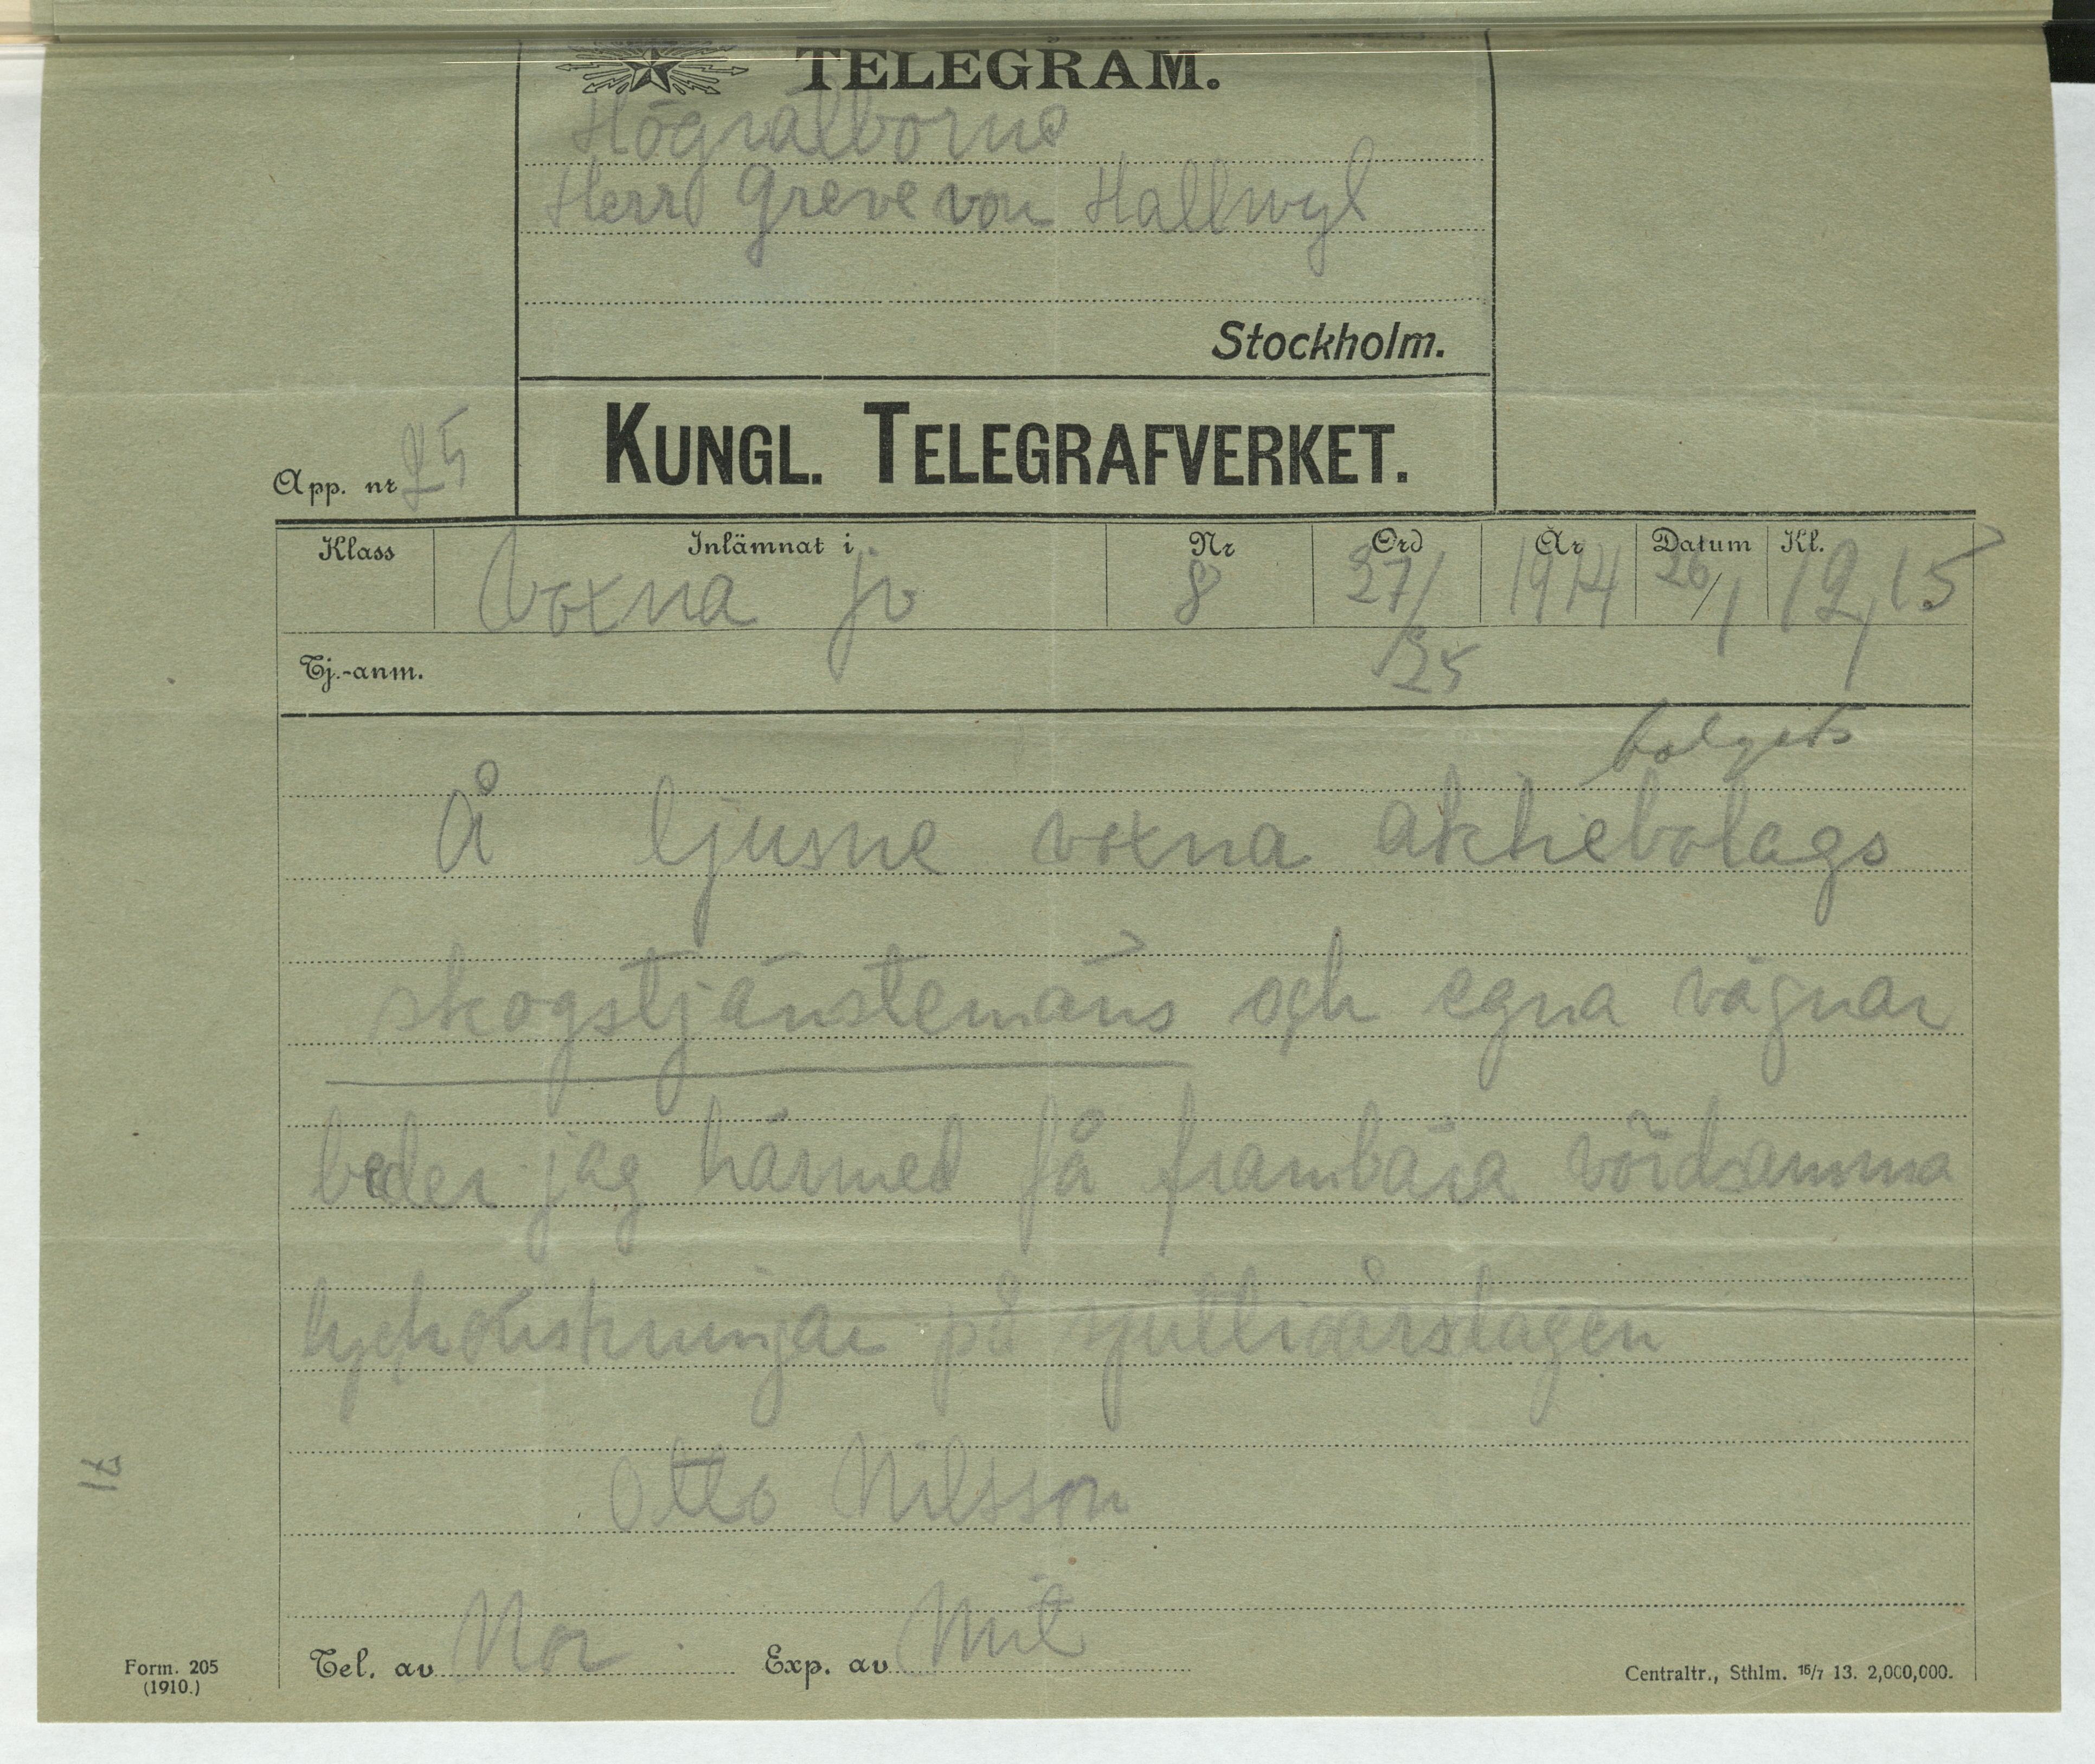 TELEGRAM.
Högvälborne
Herr Greve von Hallwyl
Stockholm.
KUNGL. TELEGRAFVERKET.
App. nr 25
Klass Inlämnat i Nr Ord År Datum Kl.
Voxna jv 8 27/ 1914 26/1 12,15
Tj.-anm. 25
Å ljusne voxna aktiebolags
skogstjänstemäns och egna vägnar
beder jag härmed få frambära vördsamma
lyckönskningar på sjuttioårsdagen
Otto Nilsson
Tel. av Nor Exp. av
71
Form. 205
(1910.)
Centraltr., Sthlm. 15/7 13. 2,000,000.